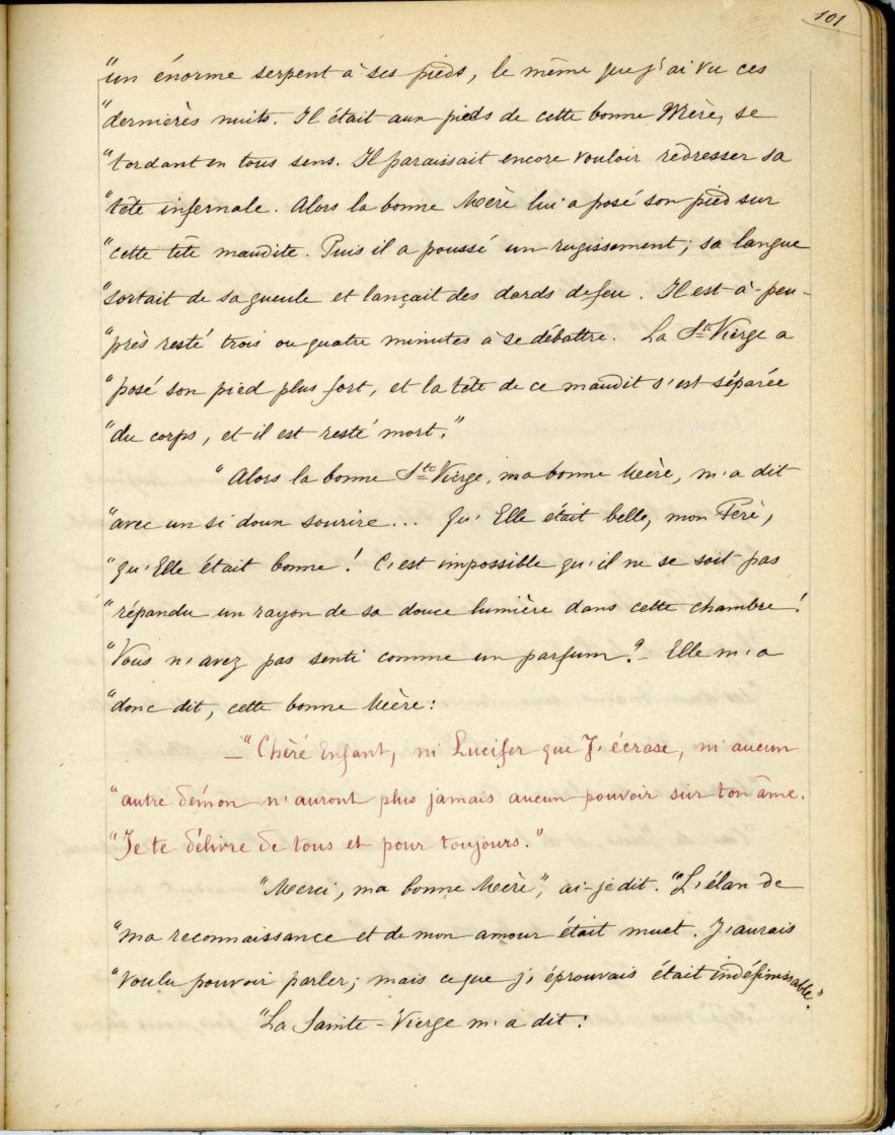 101
"un énorme serpent à ses pieds, le même que j'ai vu ces
"dernières nuits. Il était aux pieds de cette bonne Mère, se
"tordant en tous sens. Il paraissait encore vouloir redresser sa
"tête infernale. Alors la bonne Mère lui a posé son pied sur
"cette tête maudite. Puis il a poussé un rugissement; sa langue
"sortait de sa gueule et lançait des dards de feu. Il est à-peu-
"près resté trois ou quatre minutes à se débattre. La Ste Vierge a
"posé son pied plus fort, et la tête de ce maudit s'est séparée
"du corps, et il est resté mort."
"Alors la bonne Ste Vierge, ma bonne Mère, m'a dit
"avec un si doux sourire... Qu'Elle était belle, mon Père,
"qu'Elle était bonne! C'est impossible qu'il ne se soit pas
"répandu un rayon de sa douce lumière dans cette chambre!
"Vous n'avez pas senti comme un parfum? - Elle m'a
"donc dit, cette bonne Mère:
—"Chère Enfant, ni Lucifer que J'écrase, ni aucun
"autre démon n'auront plus jamais aucun pouvoir sur ton âme.
"Je te délivre de tous et pour toujours."
"Merci, ma bonne Mère", ai-je dit. "L'élan de
"ma reconnaissance et de mon amour était muet. J'aurais
"voulu pouvoir parler; mais ce que j'éprouvais était indéfinissable."
"La Sainte-Vierge m'a dit: